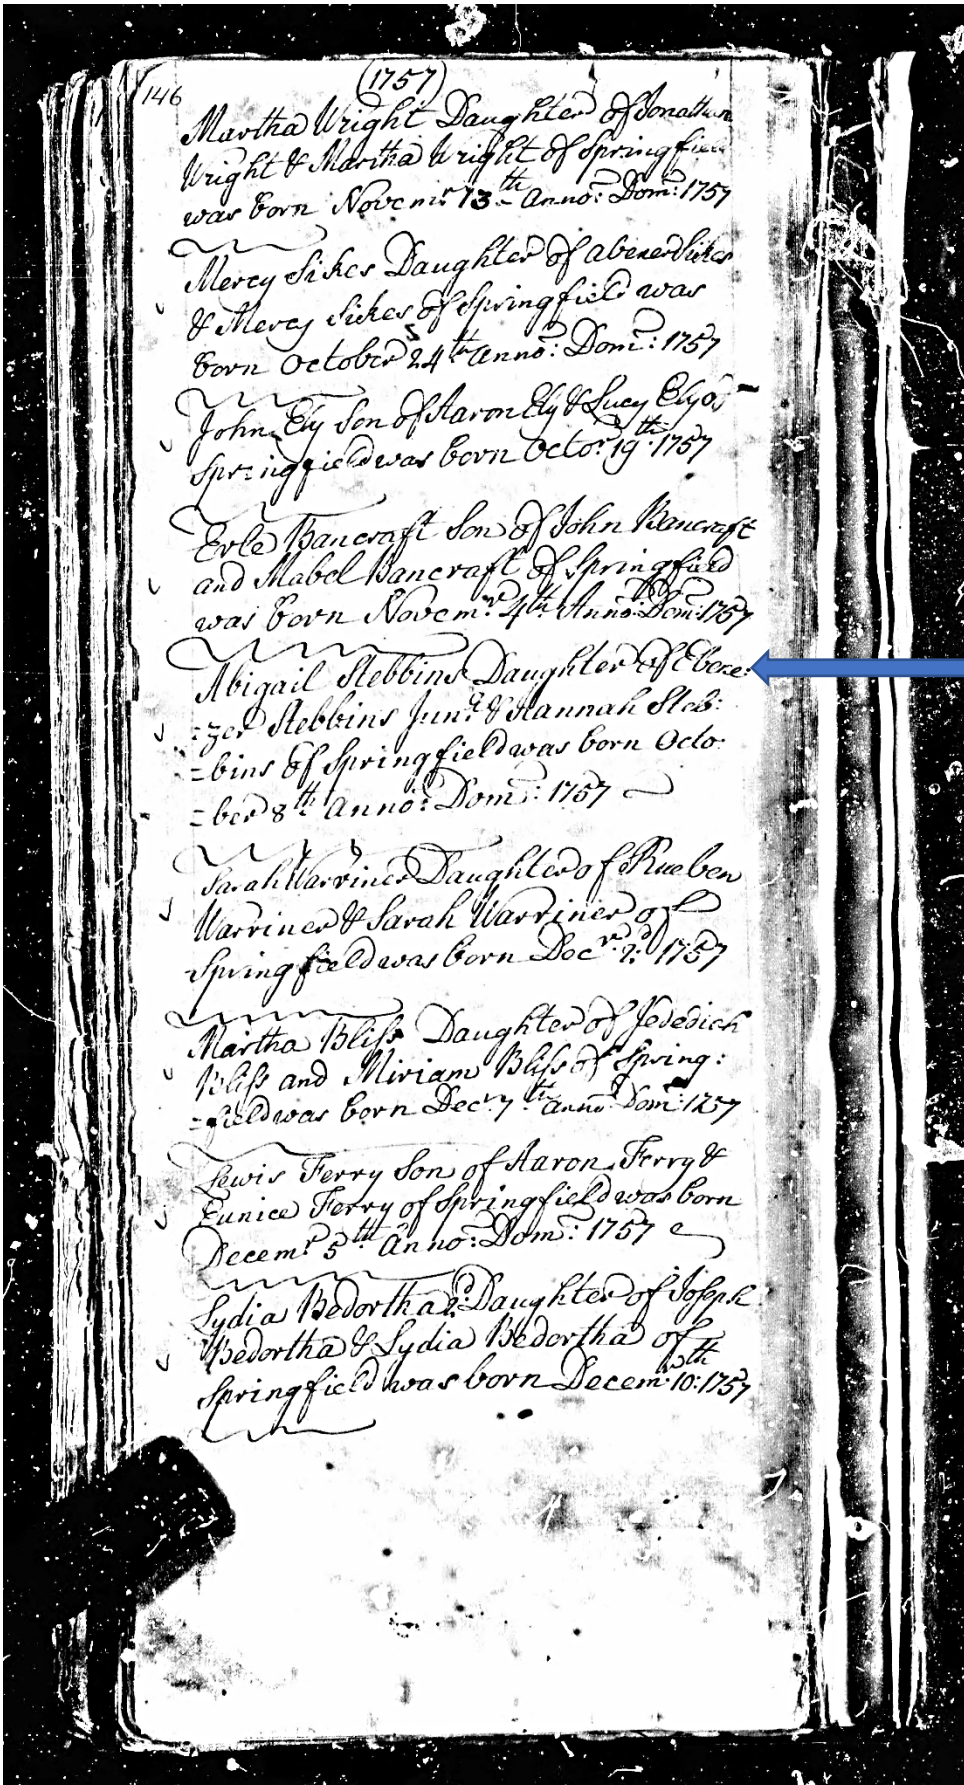 146
(1757)
Martha Wright Daughter of Jonathan
Wright & Martha Wright of Springfield
was born Novemr. 13th Anno: Dom: 1757
Mercy Sikes Daughter of abener Sikes
& Mercy Sikes of Springfield was
born October 24th anno: Dom: 1757
John Ely Son of Aaron Ely & Lucy Ely of
Springfield was born Octor. 19th. 1757
Erle Bancraft Son of John Bancraft
and Mabel Bancraft of Springfield
was born Novemr. 4th. Anno: Dom: 1757
Abigail Stebbins Daughter of Ebene:
=zer Stebbins Junr. & Hannah Steb:
=bins of Springfield was born Octo:
=ber 8th anno: Dom: 1757
Sarah Warriner Daughter of Rueben
Warriner & Sarah Warriner of
Springfield was born Decr. 2d 1757
Martha Bliss Daughter of Jedediah
Bliss and Miriam Bliss of Spring:
=field was born Decr. 7th anno: Dom: 1757
Lewis Ferry Son of Aaron Ferry &
Eunice Ferry of Springfield was born
Decemr. 5th anno: Dom: 1757
Lydia Bedortha 2d: Daughter of Joseph
Bedortha & Lydia Bedortha of
Springfield was born Decem: 10th: 1757